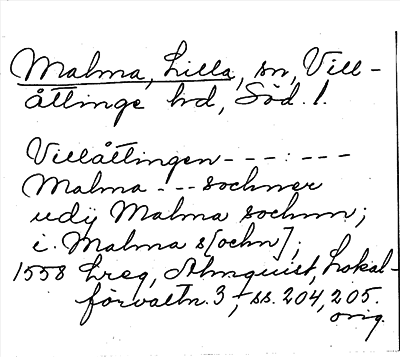 Malma, Lilla, sn, Vill-
åttinge hd, Söd. l.
Villåttingen - - - : - - -
Malma - - - sochner
udij Malma sochnn;
i. Malma s[ochn];
1558 Lreg, Almquist, Lokal-
förvaltn. 3, ss. 204, 205.
orig.